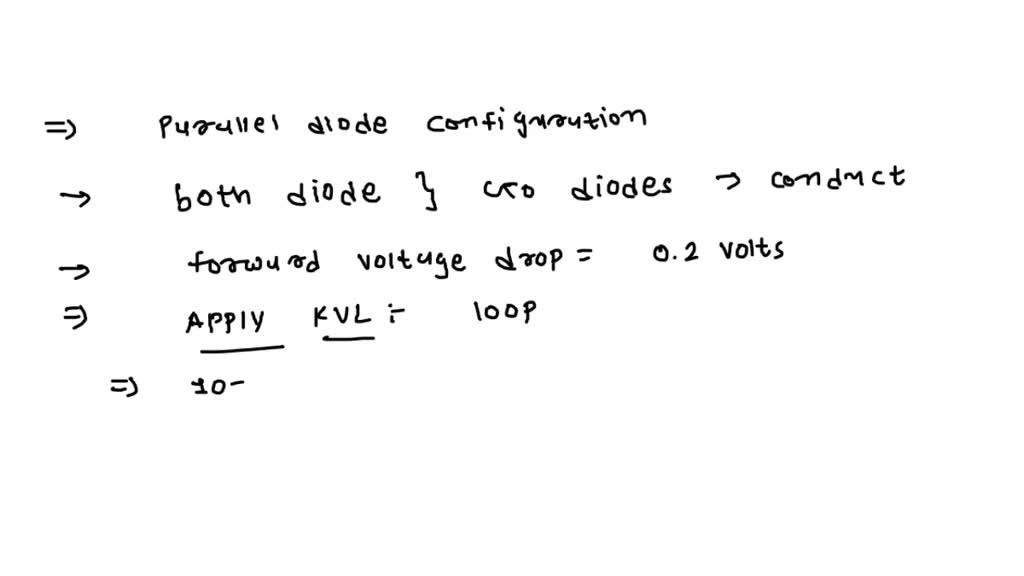 => Parallel diode configuration
→ both diode } two diodes → conduct
→ forward voltage drop = 0.2 volts
=> APPlY KVL :- loop
=> 10-